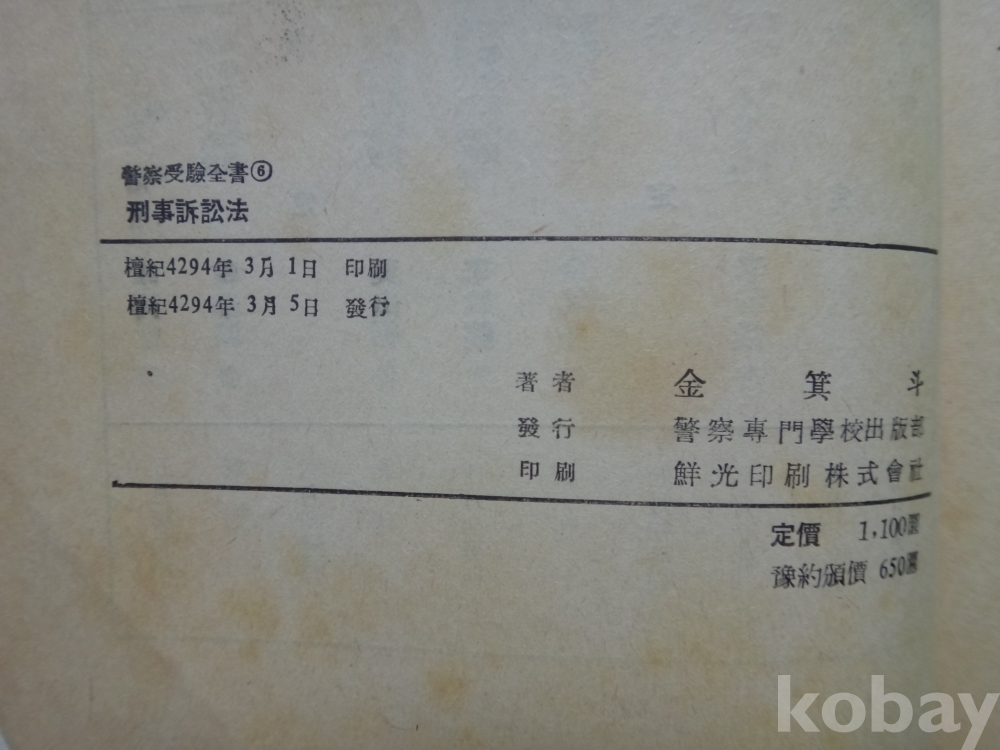 警察受驗全書⑥
刑事訴訟法
檀紀4294年 3月 1日 印刷
檀紀4294年 3月 5日 發行
著者 金箕斗
發行 警察專門學校出版部
印刷 鮮光印刷株式會社
定價 1,100圜
豫約頒價 650圜
kobay